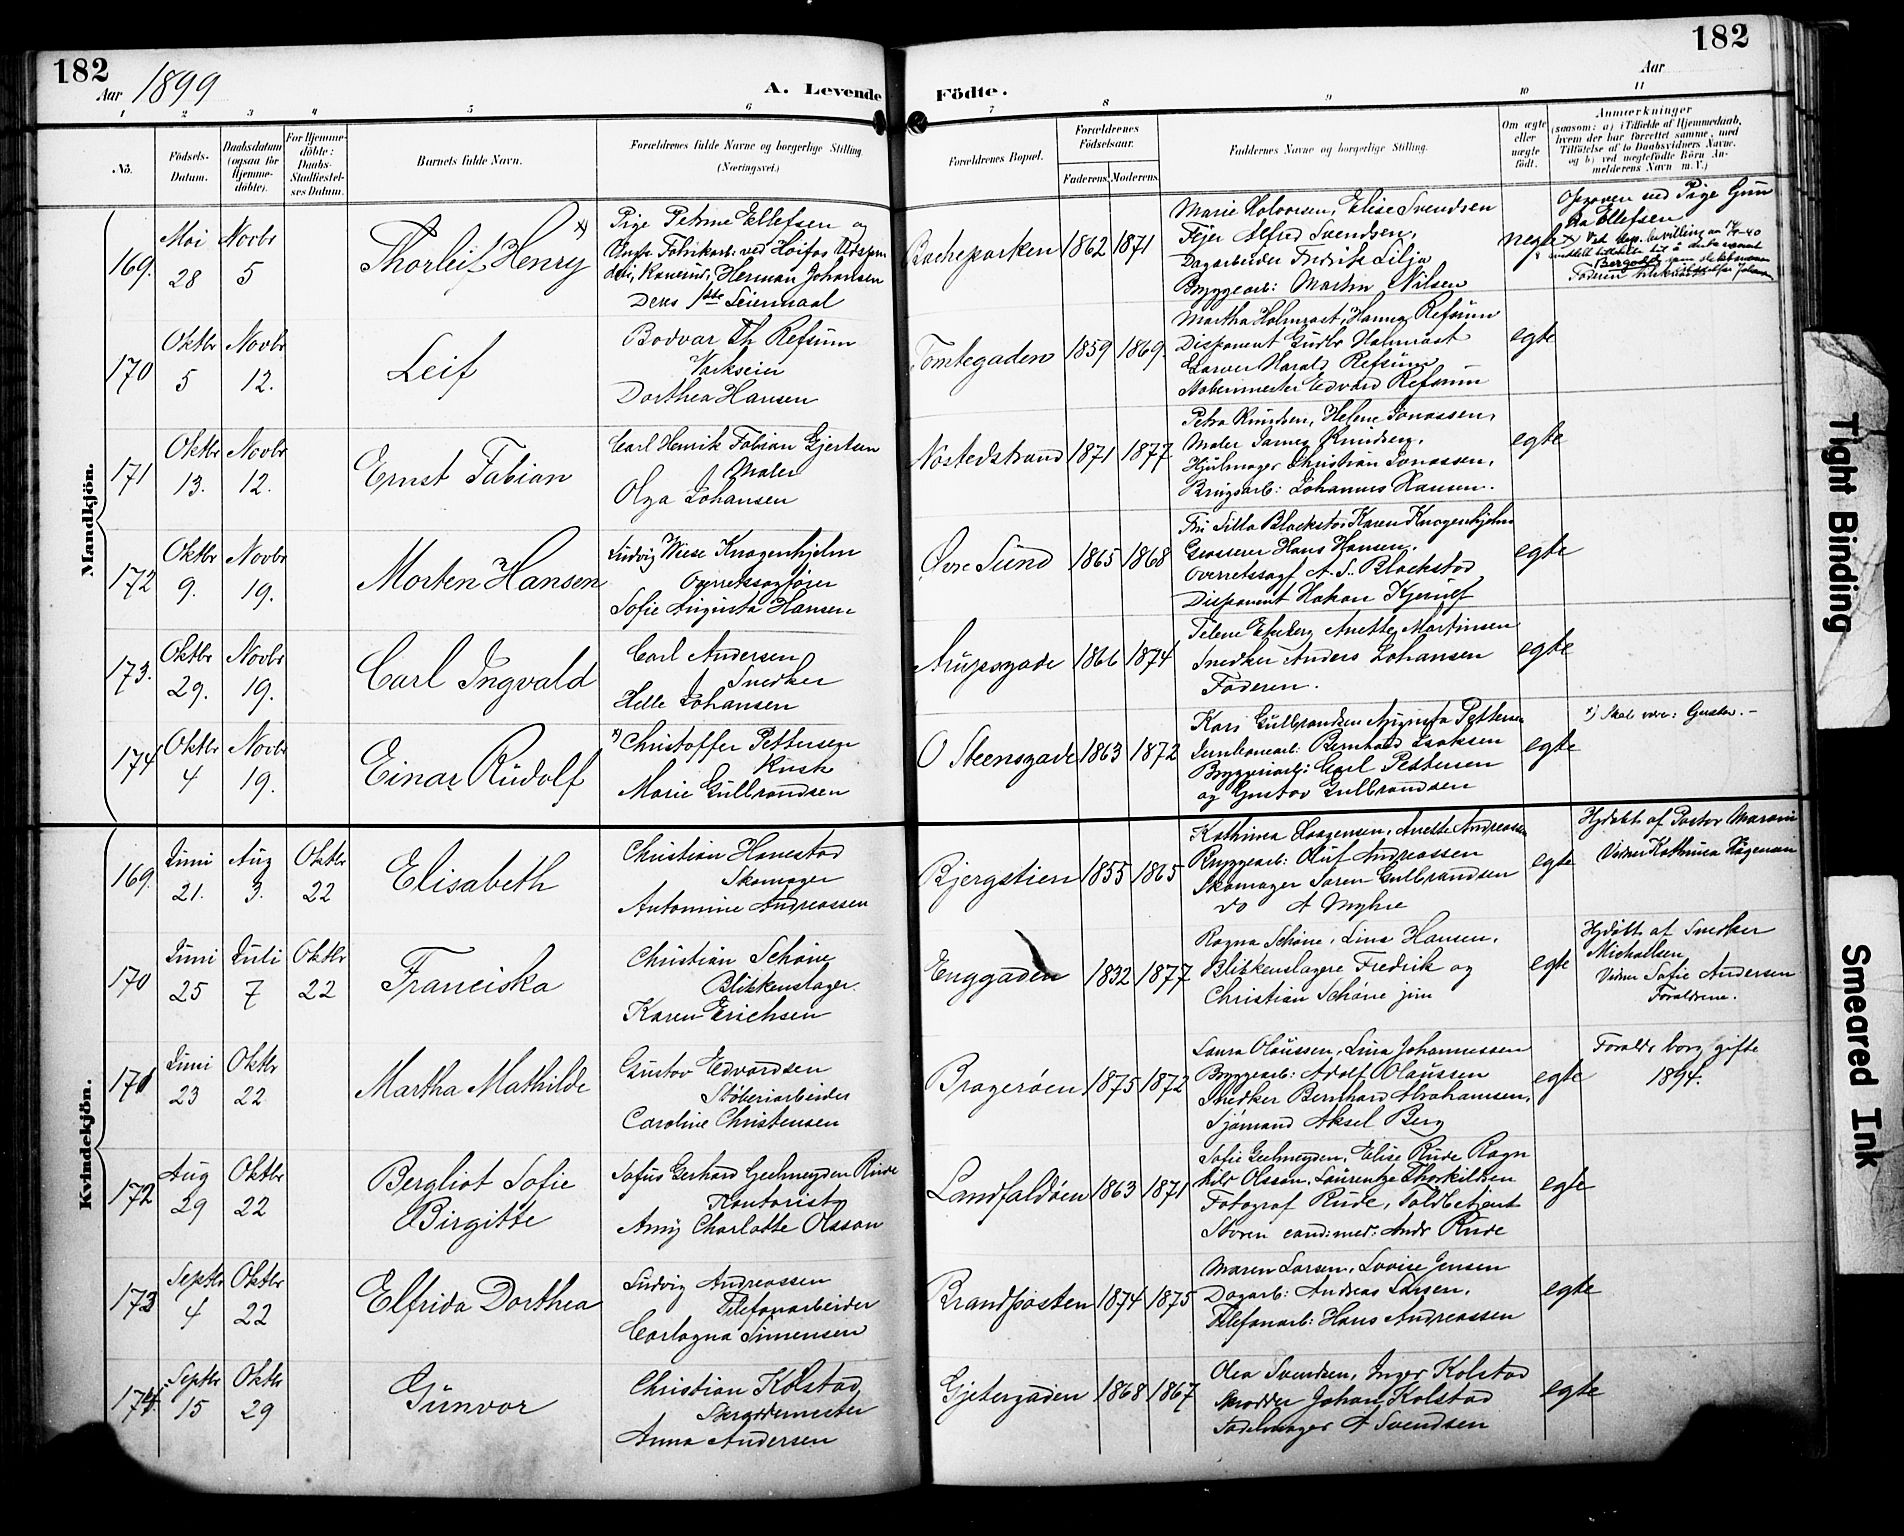 182
182
Aar 1899
A. Levende
Födte.
Aar
1 2 3 4 5 6 7 8 9 10 11
No.
Födsels-Datum.
Daabsdatum (ogsaa for Hjemme-döbte).
For Hjemme-döbte: Daabs-Stadfæstel-ses Datum.
Barnets fulde Navn.
Forældrenes fulde Navne og borgerlige Stilling (Næringsvei.)
Forældrenes Bopæl.
Forældrenes Födselsaar.
Faderens. Moderens.
Faddernes Navne og borgerlige Stilling.
Om ægte eller uægte födt.
Anmærkninger (saasom: a) i Tilfælde af Hjemmedaab, hvem der har forrettet samme, med Tilföielse af to Daabsvidners Navne, og b) ved uægtefödte Börn An-melderens Navn m. V.)
Mandkjön.
169. Mai 28 Novbr 5
Thorleif Henry x)
Pige Petrine Ellefsen og
Herman Johansen
Dens 1ste Leiermaal
Bacheparken 1862 1871
Marie Halvorsen, Elise Svendsen
Alfred Svendsen,
Dagarbeider Fredrik Lilja
Bryggearb: Martin Nilsen
uegte
Opgaven ved Pige
Ellefsen
170 Oktbr 5 Novbr 12.
Leif
Bodvar Th Refsum
Værkseier
Dorthea Hansen
Tomtegaden 1859 1869.
Martha Holmrast, Hanna Refsum
Disponent Gudbr Holmrast
Harald Refsum
Edvard Refsum
egte
171 Oktbr 13. Novbr 12.
Ernst Fabian
Carl Henrik Fabian Gjertsen
Maler
Olga Johansen
Nøstedstrand 1871 1877
Petra Knudsen, Helene Jonassen,
Maler
Hjulmager Christian Jonassen,
Johannes Hansen.
egte
172 Oktbr 9. Novbr 19.
Morten Hansen
Ludvig Wiese Knagenhjelm
Overretssagfører
Sofie Augusta Hansen
Øvre Sund 1865 1868
Blackstad Karen Knagenhjelm
Grosserer Hans Hansen.
Overretssagf A. S. Blackstad
Disponent Hakon Kjerulf
egte
173. Oktbr 29. Novbr 19.
Carl Ingvald
Carl Andersen
Snedker
Helle Johansen
Arupsgade 1866 1874
Ekeberg Anette Martinsen
Snedker Anders Johansen
Faderen.
egte
174 Oktbr 4 Novbr 19.
Einar Rudolf
x) Christoffer Pettersen
Kusk
Marie Gulbrandsen
O Steensgade 1863 1872
Kari Gulbrandsen Augusta Pettersen
Jernbanearb: Bernhard Isaksen
Bryggeriarb: Carl Pettersen
og Gustav Gulbrandsen
egte
x) Skal være: Gustav.-
Kvindekjön.
169. Juni 21. Aug 3. Oktbr 22
Elisabeth
Christian Hanestad
Skomager
Antomine Andreassen
Bjergstien 1855 1865
Kathinca Haagensen, Anette Andreassen
Bryggearb: Oluf Andreassen
Skomager Søren Gulbrandsen
do A Myhre
egte
Hjdøbt af Pastor
Vidner Kathinca
170 Juni 25 Juli 7 Oktbr 22
Franciska
Christian Schøne
Blikkenslager.
Karen Erichsen
Enggaden 1832 1877
Ragna Schøne, Lina Hansen,
Blikkenslagere Fredrik og
Christian Schøne jun
egte
Hjdøbt af Snedker
Michaelsen
Vidner Sofie Andersen
Forældrene.
171 Juni 23 Oktbr 22
Martha Mathilde
Gustav Edvardsen
Støberiarbeider
Caroline Christensen
Bragerøen 1875 1872
Laura Olaussen, Lina Johannessen
Bryggearb: Adolf Olaussen
Snedker Bernhard Abrahamsen,
Sjømand Aksel Berg
egte
Forældr borg gifte
1894.
172 Aug 29 Oktbr 22
Bergliot Sofie
Birgitte
Sofus Gerhard Geelmeyden Rude
Kontorist
Amy Charlotte Olsson
Landfaldøen 1863 1871
Sofie Geelmeyden, Elise Rude Ragn
hild Olsson, Laurentze Thorkildsen
Fotograf Rude, Toldbetjent
Støren cand: med: Andr Rude
egte
173 Septbr 4 Oktbr 22
Elfrida Dorthea
Ludvig Andreassen
Telefonarbeider
Cartagna Simensen
Brandposten 1874 1875
Maren Larsen, Lovise Jensen
Dagarb: Andreas Larsen,
Telefonarb: Hans Andreassen
egte
174. Septbr 15 Oktbr 29
Gunvor
Christian Kolstad
Skræddermester
Anna Andersen
Gjetergaden 1868 1867
Olea Svendsen, Inger Kolstad
Skrædder Johan Kolstad
Sadelmager A Svendsen
egte
Tight Binding
Smeared Ink